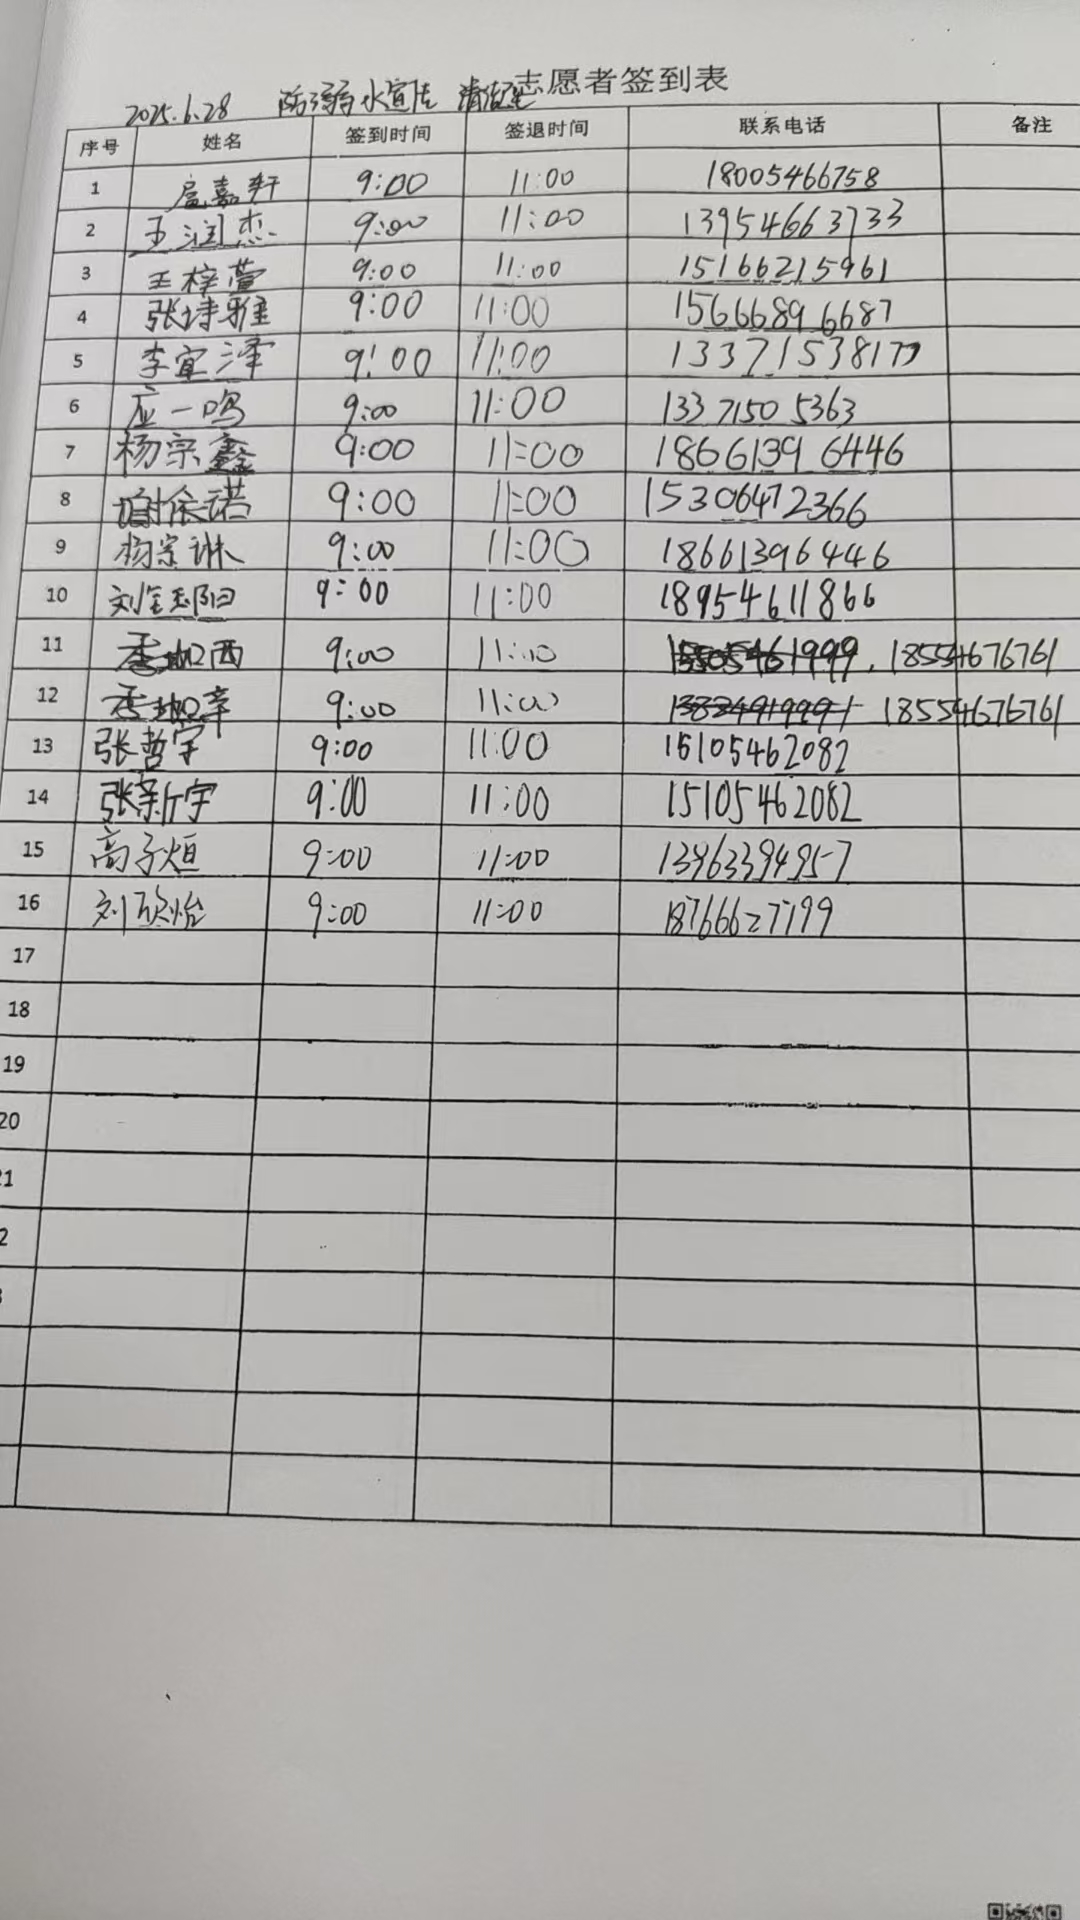 2025.6.28 防溺水宣传 清洁 志愿者签到表
序号 姓名 签到时间 签退时间 联系电话 备注
1 扈嘉轩 9:00 11:00 18005466758
2 王润杰 9:00 11:00 13954663733
3 王梓萱 9:00 11:00 15166215961
4 张诗雅 9:00 11:00 15666896687
5 李宜泽 9:00 11:00 13371538177
6 应一鸣 9:00 11:00 13371505363
7 杨宗鑫 9:00 11:00 18661396446
8 谢依诺 9:00 11:00 15306472366
9 杨宗琳 9:00 11:00 18661396446
10 刘 阳 9:00 11:00 18954611866
11 西 9:00 11:00 15505461999, 18554676761
12 9:00 11:00 18554676761
13 张哲宇 9:00 11:00 15105462082
14 张新宇 9:00 11:00 15105462082
15 高子烜 9:00 11:00 13963394957
16 刘欣怡 9:00 11:00 18766627199
17
18
19
20